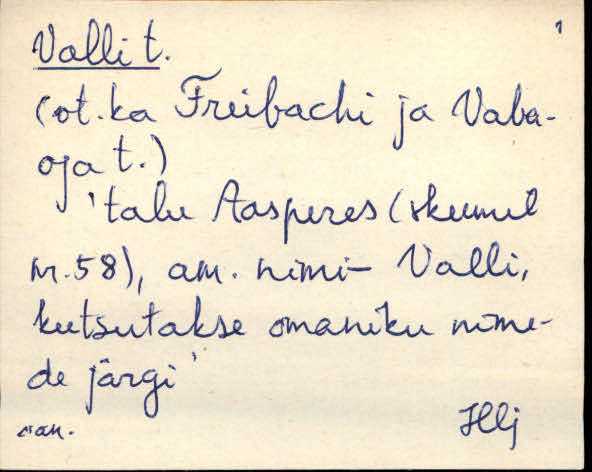 1
Valli t.
(ot. ka Freibachi ja Vaba-
oja t.)
'talu Aasperes (skeemil
nr. 58), am. nimi - Valli,
kutsutakse omaniku nime-
de järgi'
Hlj